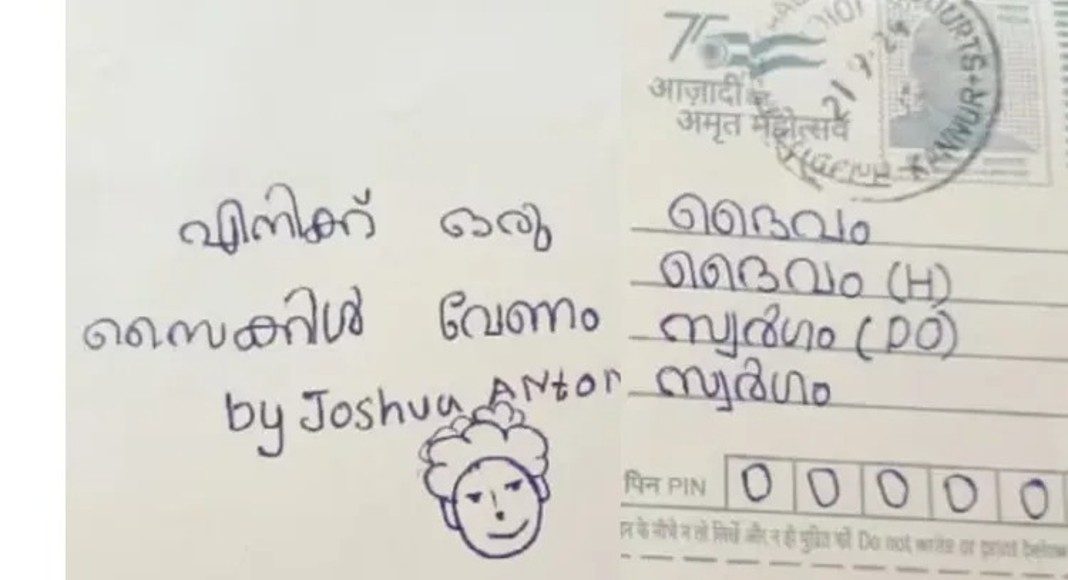 എനിക്ക് ഒരു
സൈക്കിൾ വേണം
by Joshua Anton
75
आज़ादी का
अमृत महोत्सव
COURTS * KANNUR *
21
ദൈവം
ദൈവം (H)
സ്വർഗം (PO)
സ്വർഗം
पिन PIN 0 0 0 0 0
के नीचे न तो लिखें और न ही मुद्रित करें Do not write or print below